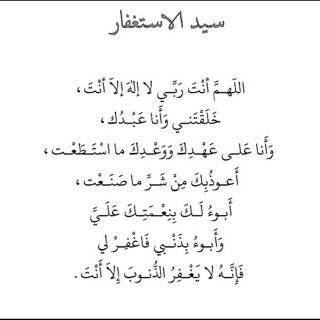 سيد الاستغفار
اللّهـمَّ أَنْتَ رَبِّـي لا إلهَ إلاّ أَنْتَ ،
خَلَقْتَنـي وَأَنا عَبْـدُك ،
وَأَنا عَلـى عَهْـدِكَ وَوَعْـدِكَ ما اسْتَـطَعْـت ،
أَعـوذُبِكَ مِنْ شَـرِّ ما صَنَـعْت ،
أَبـوءُ لَـكَ بِنِعْـمَتِـكَ عَلَـيَّ
وَأَبـوءُ بِذَنْـبي فَاغْفِـرْ لي
فَإِنَّـهُ لا يَغْـفِرُ الذُّنـوبَ إِلاّ أَنْتَ .